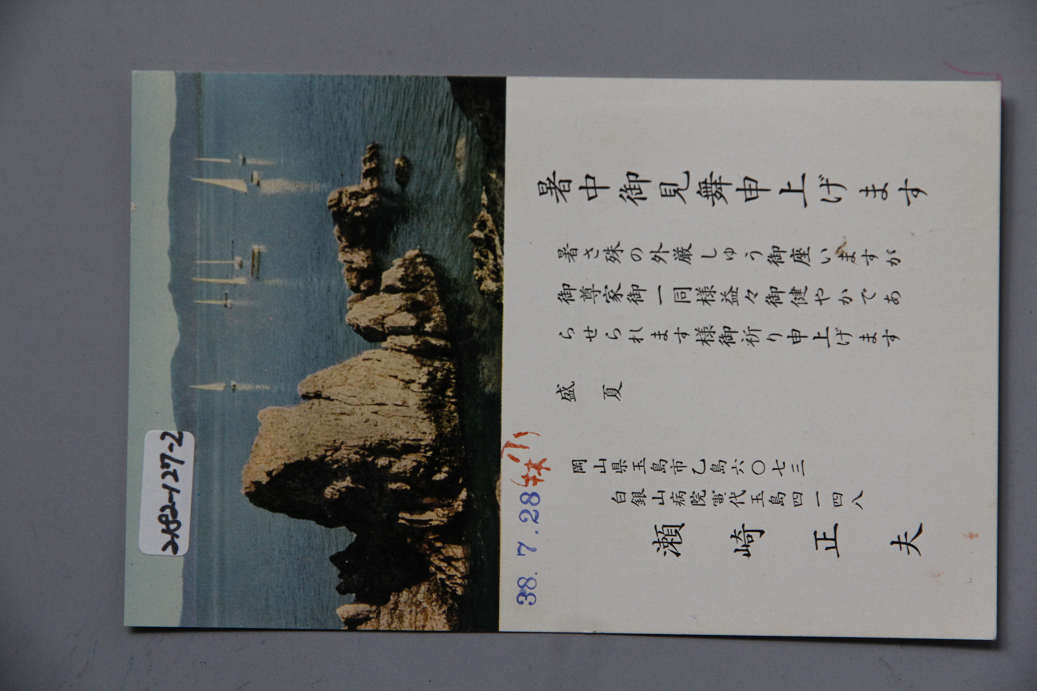 暑中御見舞申上げます
暑さ殊の外厳しゅう御座いますが
御尊家御一同様益々御健やかであ
らせられます様御祈り申上げます
盛夏
岡山県玉島市乙島六〇七三
白銀山病院電代玉島四一四八
瀬崎正夫
38.7.28
2192-127-2